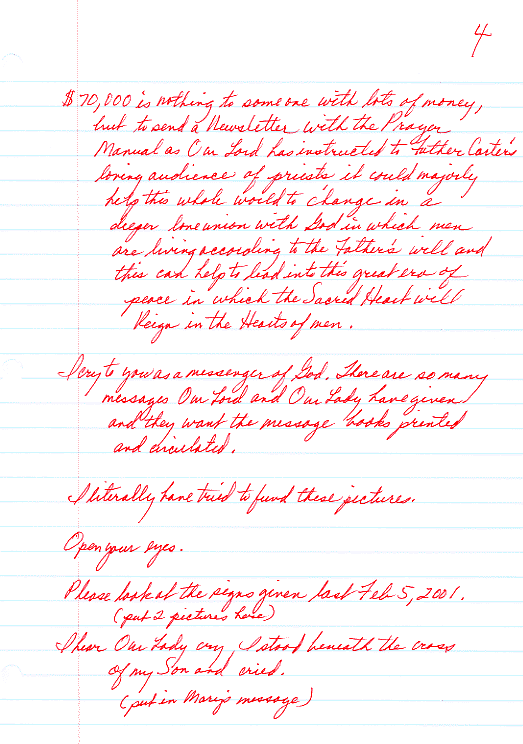 4
$70,000 is nothing to someone with lots of money,
but to send a Newsletter with the Prayer
Manual as Our Lord has instructed to Father Carter's
loving audience of priests it could majorly
help this whole world to change in a
deeper love union with God in which men
are living according to the Father's will and
this can help to lead into this great era of
peace in which the Sacred Heart will
Reign in the Hearts of men.
I cry to you as a messenger of God. There are so many
messages Our Lord and Our Lady have given
and they want the message books printed
and circulated.
I literally have tried to fund these pictures.
Open your eyes.
Please look at the signs given last Feb 5, 2001.
(put 2 pictures here)
I hear Our Lady cry, I stood beneath the cross
of my Son and cried.
(put in Mary's message)